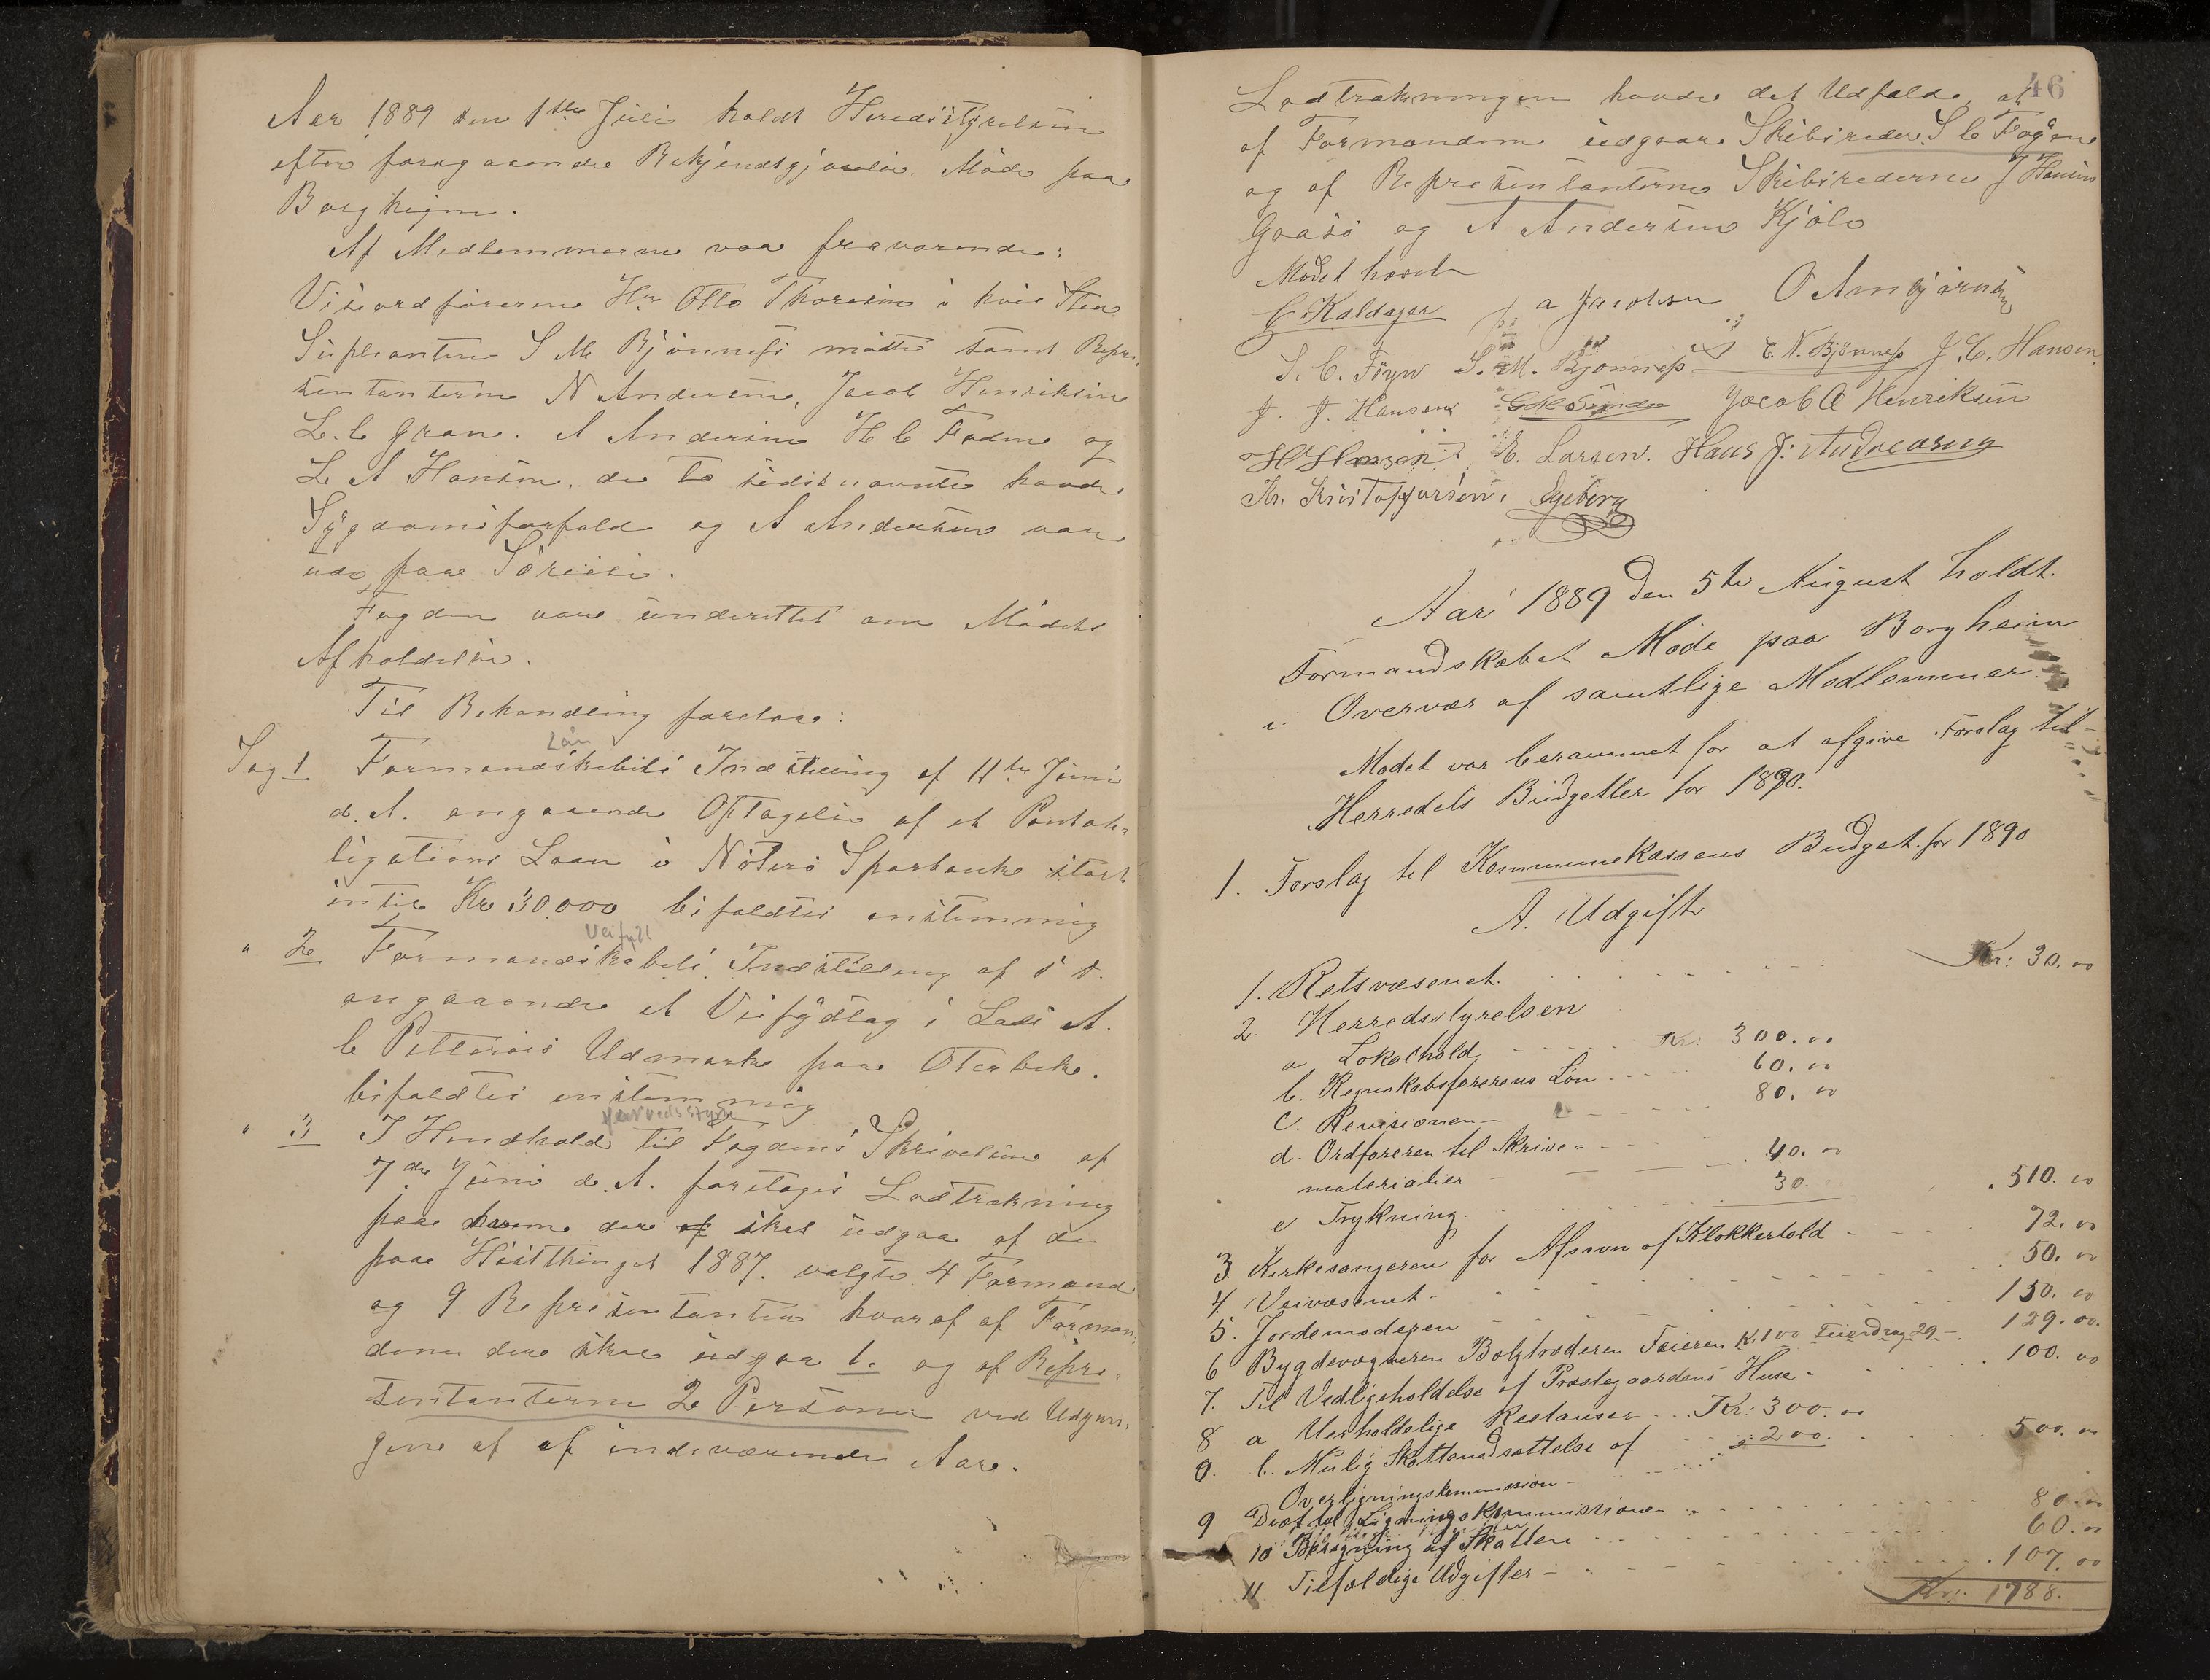 Aar 1889 den 1ste Juli holdt Heredsstyrelsen
efter foregaaende Bekjendtgjørelse Møde paa
Borgheim.
Af Medlemmerne var fraværende:
Viseordføreren Hr Otto Thoresen i hvis Sted
Supleanten S M Bjønness mødte samt Repræ-
sentanterne N Andersen, Jacob Henriksen
L. C Gran. A Andersen H C Fadme og
L A Hansen, de to sidstnævnte havde
Sygdomsforfald og A Andersen var
ude paa Søreise.
Fogden var underettet om Mødets
Afholdelse.
Til Behandling foretoges:
Lån
Sag 1 Formandskabets Indstilling af 11te Juni
d. A. angaaende Optagelse af et Pantob-
ligations Laan i Nøterø Sparbanke stort
indtil Kr 30.000 bifaldtes enstemmig
Veifyll
" 2 Formandskabets Indstilling af s d.
angaaende et Veifyldtag i Lasi A.
C Pettersens Udmarke paa Oterbeke.
bifaldtes enstemmig
Herredsstyre
" 3 I Henhold til Fogdens Skrivelse af
7de Juni d. A. foretoges Lodtrækning
paa hvem der af skal udgaa af de
paa Høstthinget 1887. valgte 4 Formænd
og 9 Repræsentanter hvoraf af Forman-
dene der skal udgaa 1. og af Repræ-
sentanterne 2 Personer ved Udgan-
gen af af indeværende Aar.
46
Lodtrækningen havde det Udfald, at
af Formændene udgaar Skibsreder S C Føyen
og af Repræsentanterne Skibsrederne J Hansen
Gaasø og A Andersen Kjøle
Mødet hævet
C Kaldager a Jacobsen O Ambjørnsen
S. C. Föyn S. M. Bjønness E. N. Bjønness J. C. Hansen
J. J. Hansen Jacob A Henriksen
H Hansen E. Larsen. Hans J. Andreasen
Kr. Kristoffersen. Egeberg
Aar 1889 den 5te August holdt
Formandskabet Møde paa Borgheim
i Overvær af samtlige Medlemmer.
Mødet var berammet for at afgive Forslag til
Herredets Budgetter for 1890.
1. Forslag til Kommunekassens Budget for 1890
A. Udgifte
1. Retsvæsenet. Kr: 30.00
2. Herredsstyrelsen
a Lokalhold Kr: 300.00
b. Regnskabsførerens Løn 60.00
C. Revisionen 80.00
d. Ordføreren til Skrive-
materialier 40.00
e Trykning. 30. 510.00
3. Kirkesangeren for Afsavn af Klokkertold 72.00
4. Veivæsenet 50.00
5. Jordemoderen 150.00
6 Bygdevægteren Bolgtræderen Feieren K. 100 Feierdreng 29 129.00.
7. Til Vedligeholdelse af Præstegaardens Huse 100.00
8 a Uerholdelige Restanser Kr: 300.00
b. Mulig Skattenedsættelse af
Overligningskommission 200. 500.00
9 Diæt til Ligningskommissionen 80.00
10 Beregning af Skatten 60.00
11 Tilfældige Udgifter 107.00
Kr: 1788.